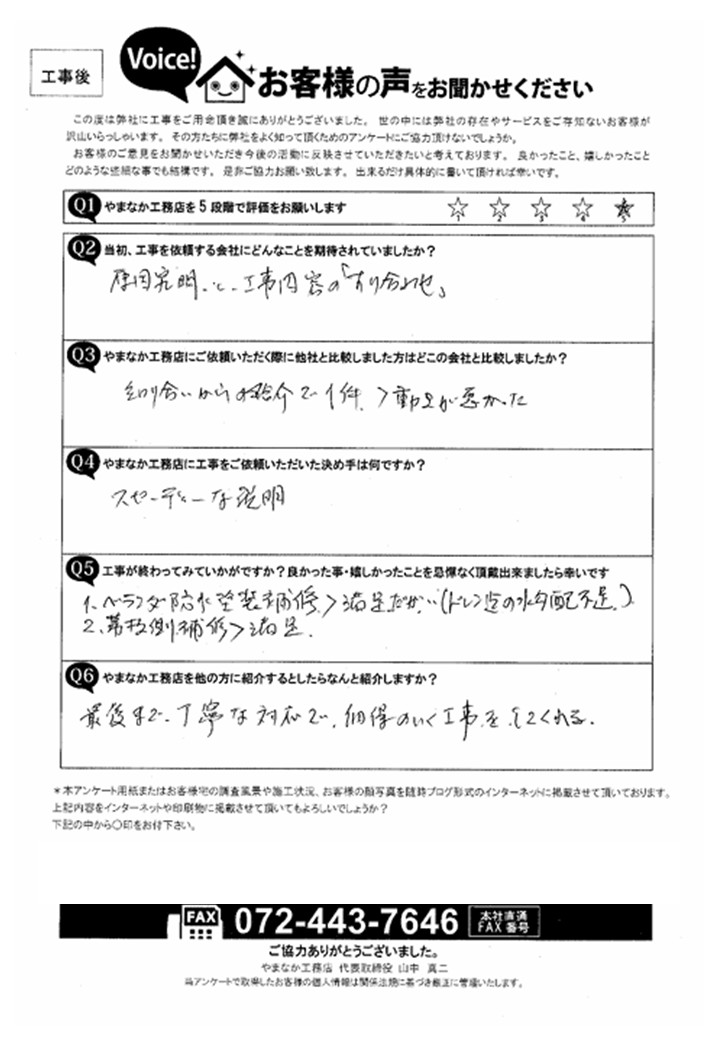 工事後
Voice!
お客様の声をお聞かせください
この度は弊社に工事をご用命頂き誠にありがとうございました。 世の中には弊社の存在やサービスをご存知ないお客様が
沢山いらっしゃいます。 その方たちに弊社をよく知って頂くためのアンケートにご協力頂けないでしょうか。
お客様のご意見をお聞かせいただき今後の活動に反映させていただきたいと考えております。 良かったこと、嬉しかったこと
どのような些細な事でも結構です。 是非ご協力お願い致します。 出来るだけ具体的に書いて頂ければ幸いです。
Q1 やまなか工務店を5段階で評価をお願いします
Q2 当初、工事を依頼する会社にどんなことを期待されていましたか?
原因究明、と、工事内容の「すり合わせ」
Q3 やまなか工務店にご依頼いただく際に他社と比較しました方はどこの会社と比較しましたか?
知り合いからの紹介で1件、>動きが悪かった
Q4 やまなか工務店に工事をご依頼いただいた決め手は何ですか?
スピーディーな説明
Q5 工事が終わってみていかがですか?良かった事・嬉しかったことを忌憚なく頂戴出来ましたら幸いです
1、ベランダ防水塗装補修>満足だが…(ドレン迄の水勾配不足。)
2、幕板側補修>満足.
Q6 やまなか工務店を他の方に紹介するとしたらなんと紹介しますか?
最後まで、丁寧な対応で、納得のいく工事をしてくれる.
*本アンケート用紙またはお客様宅の調査風景や施工状況、お客様の顔写真を随時ブログ形式のインターネットに掲載させて頂いております。
上記内容をインターネットや印刷物に掲載させて頂いてもよろしいでしょうか?
下記の中から○印をお付下さい。
FAX 072-443-7646 本社直通
FAX番号
ご協力ありがとうございました。
やまなか工務店 代表取締役 山中 真二
当アンケートで取得したお客様の個人情報は関係法規に基づき厳正に管理いたします。